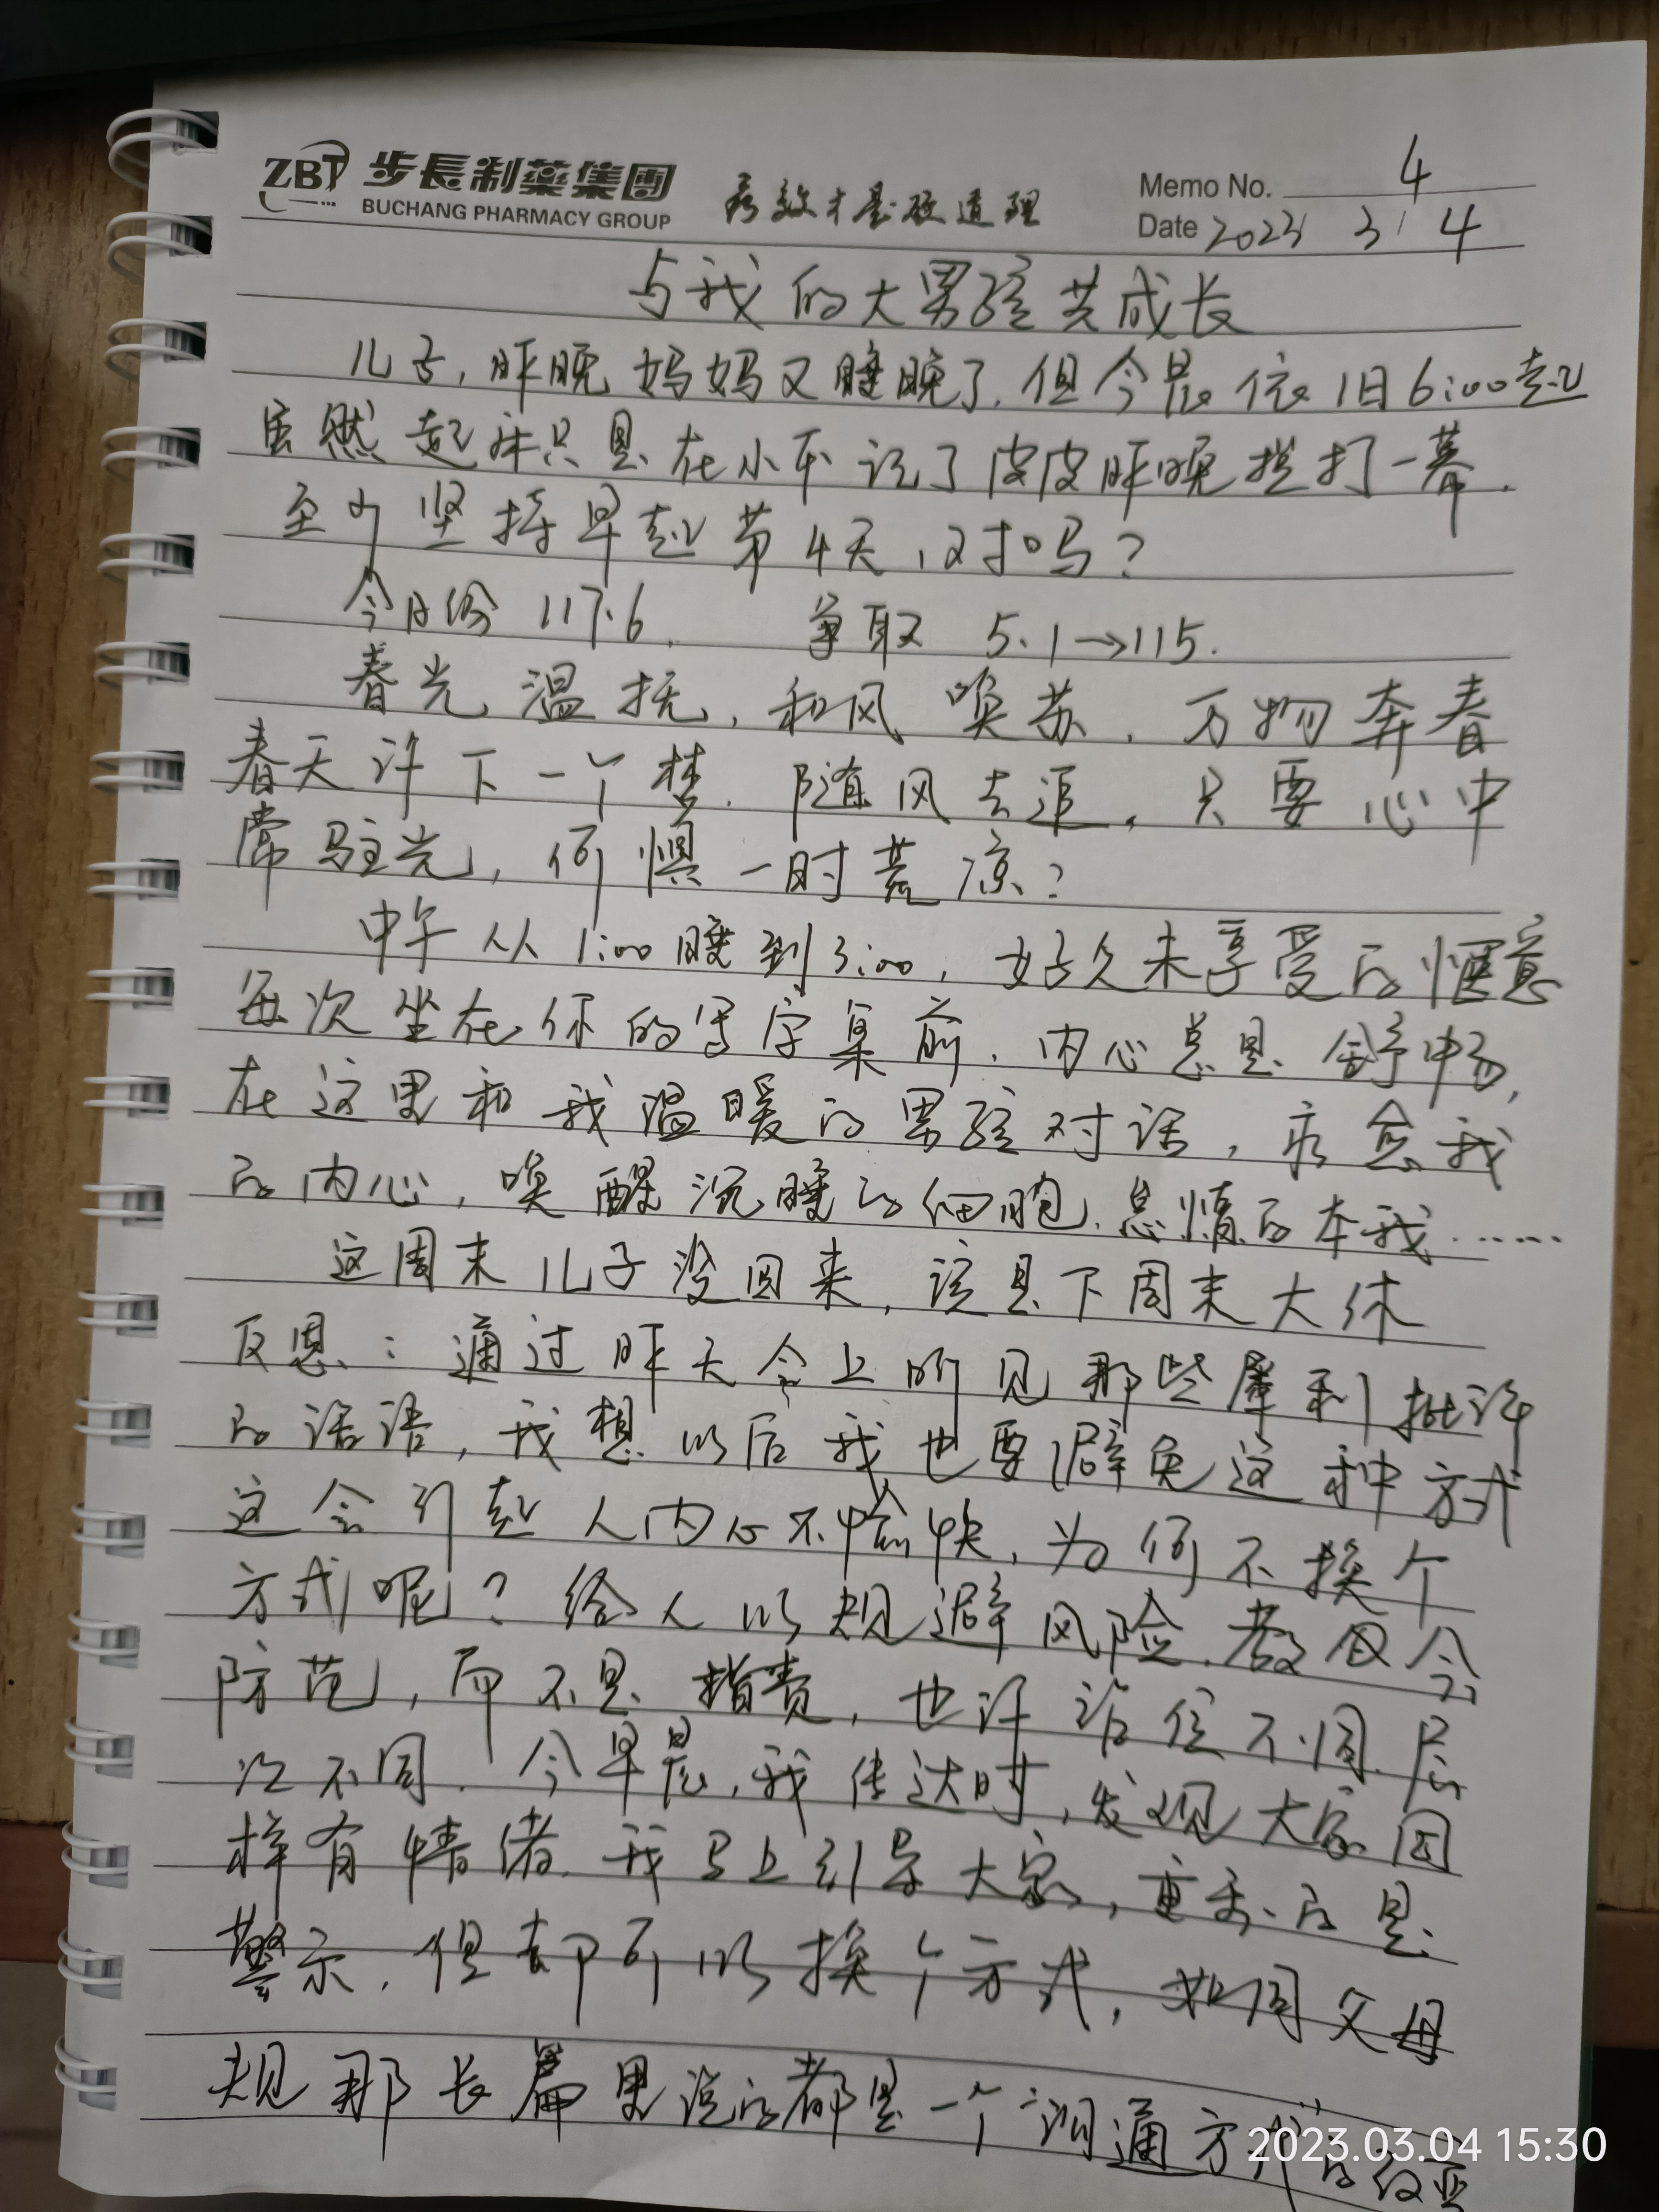 ZBT 步長制藥集團
BUCHANG PHARMACY GROUP
疗效才是硬道理
Memo No. 4
Date 2023 3 4
与我的大男孩共成长
儿子,昨晚妈妈又睡晚了,但今晨依旧6:00起
虽然起床只是在小本记了皮皮昨晚挨打一幕.
至少坚持早起第4天,对吗?
今日份 117.6. 争取 5.1→115.
春光温抚,和风唤苏,万物奔春
春天许下一个梦.随风去追,只要心中
常驻光,何惧一时荒凉?
中午从1:00睡到3:00,好久未享受的惬意
每次坐在你的写字桌前.内心总是舒畅,
在这里和我温暖的男孩对话,疗愈我
的内心,唤醒沉睡的细胞.怠惰的本我……
这周末儿子没回来,该是下周末大休
反思:通过昨天会上所见那些犀利批评
的话语,我想以后我也要避免这种方式
这会引起人内心不愉快,为何不换个
方式呢?给人以规避风险.教 会
防范,而不是指责,也许 位不同.层
次不同.今早晨,我传达时,发现大家因
样有情绪.我马上引导大家,重要的是
警示.但却可以换个方式,如同父母
规那长篇里说的都是一个"沟通方式"的
2023.03.04 15:30